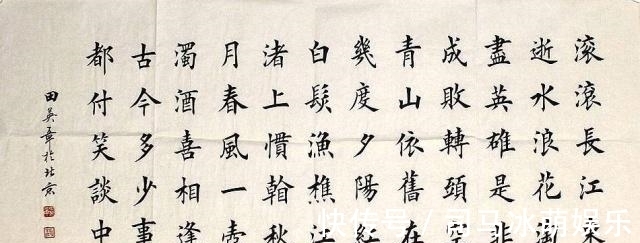 滚滚長江東
逝水浪花淘
盡英雄是非
成敗轉頭空
青山依舊在
幾度夕陽紅
白髮漁樵江
渚上慣看秋
月春風一壺
濁酒喜相逢
古今多少事
都付笑談中
田英章於北京
快传号 / 司马冰萌娱乐